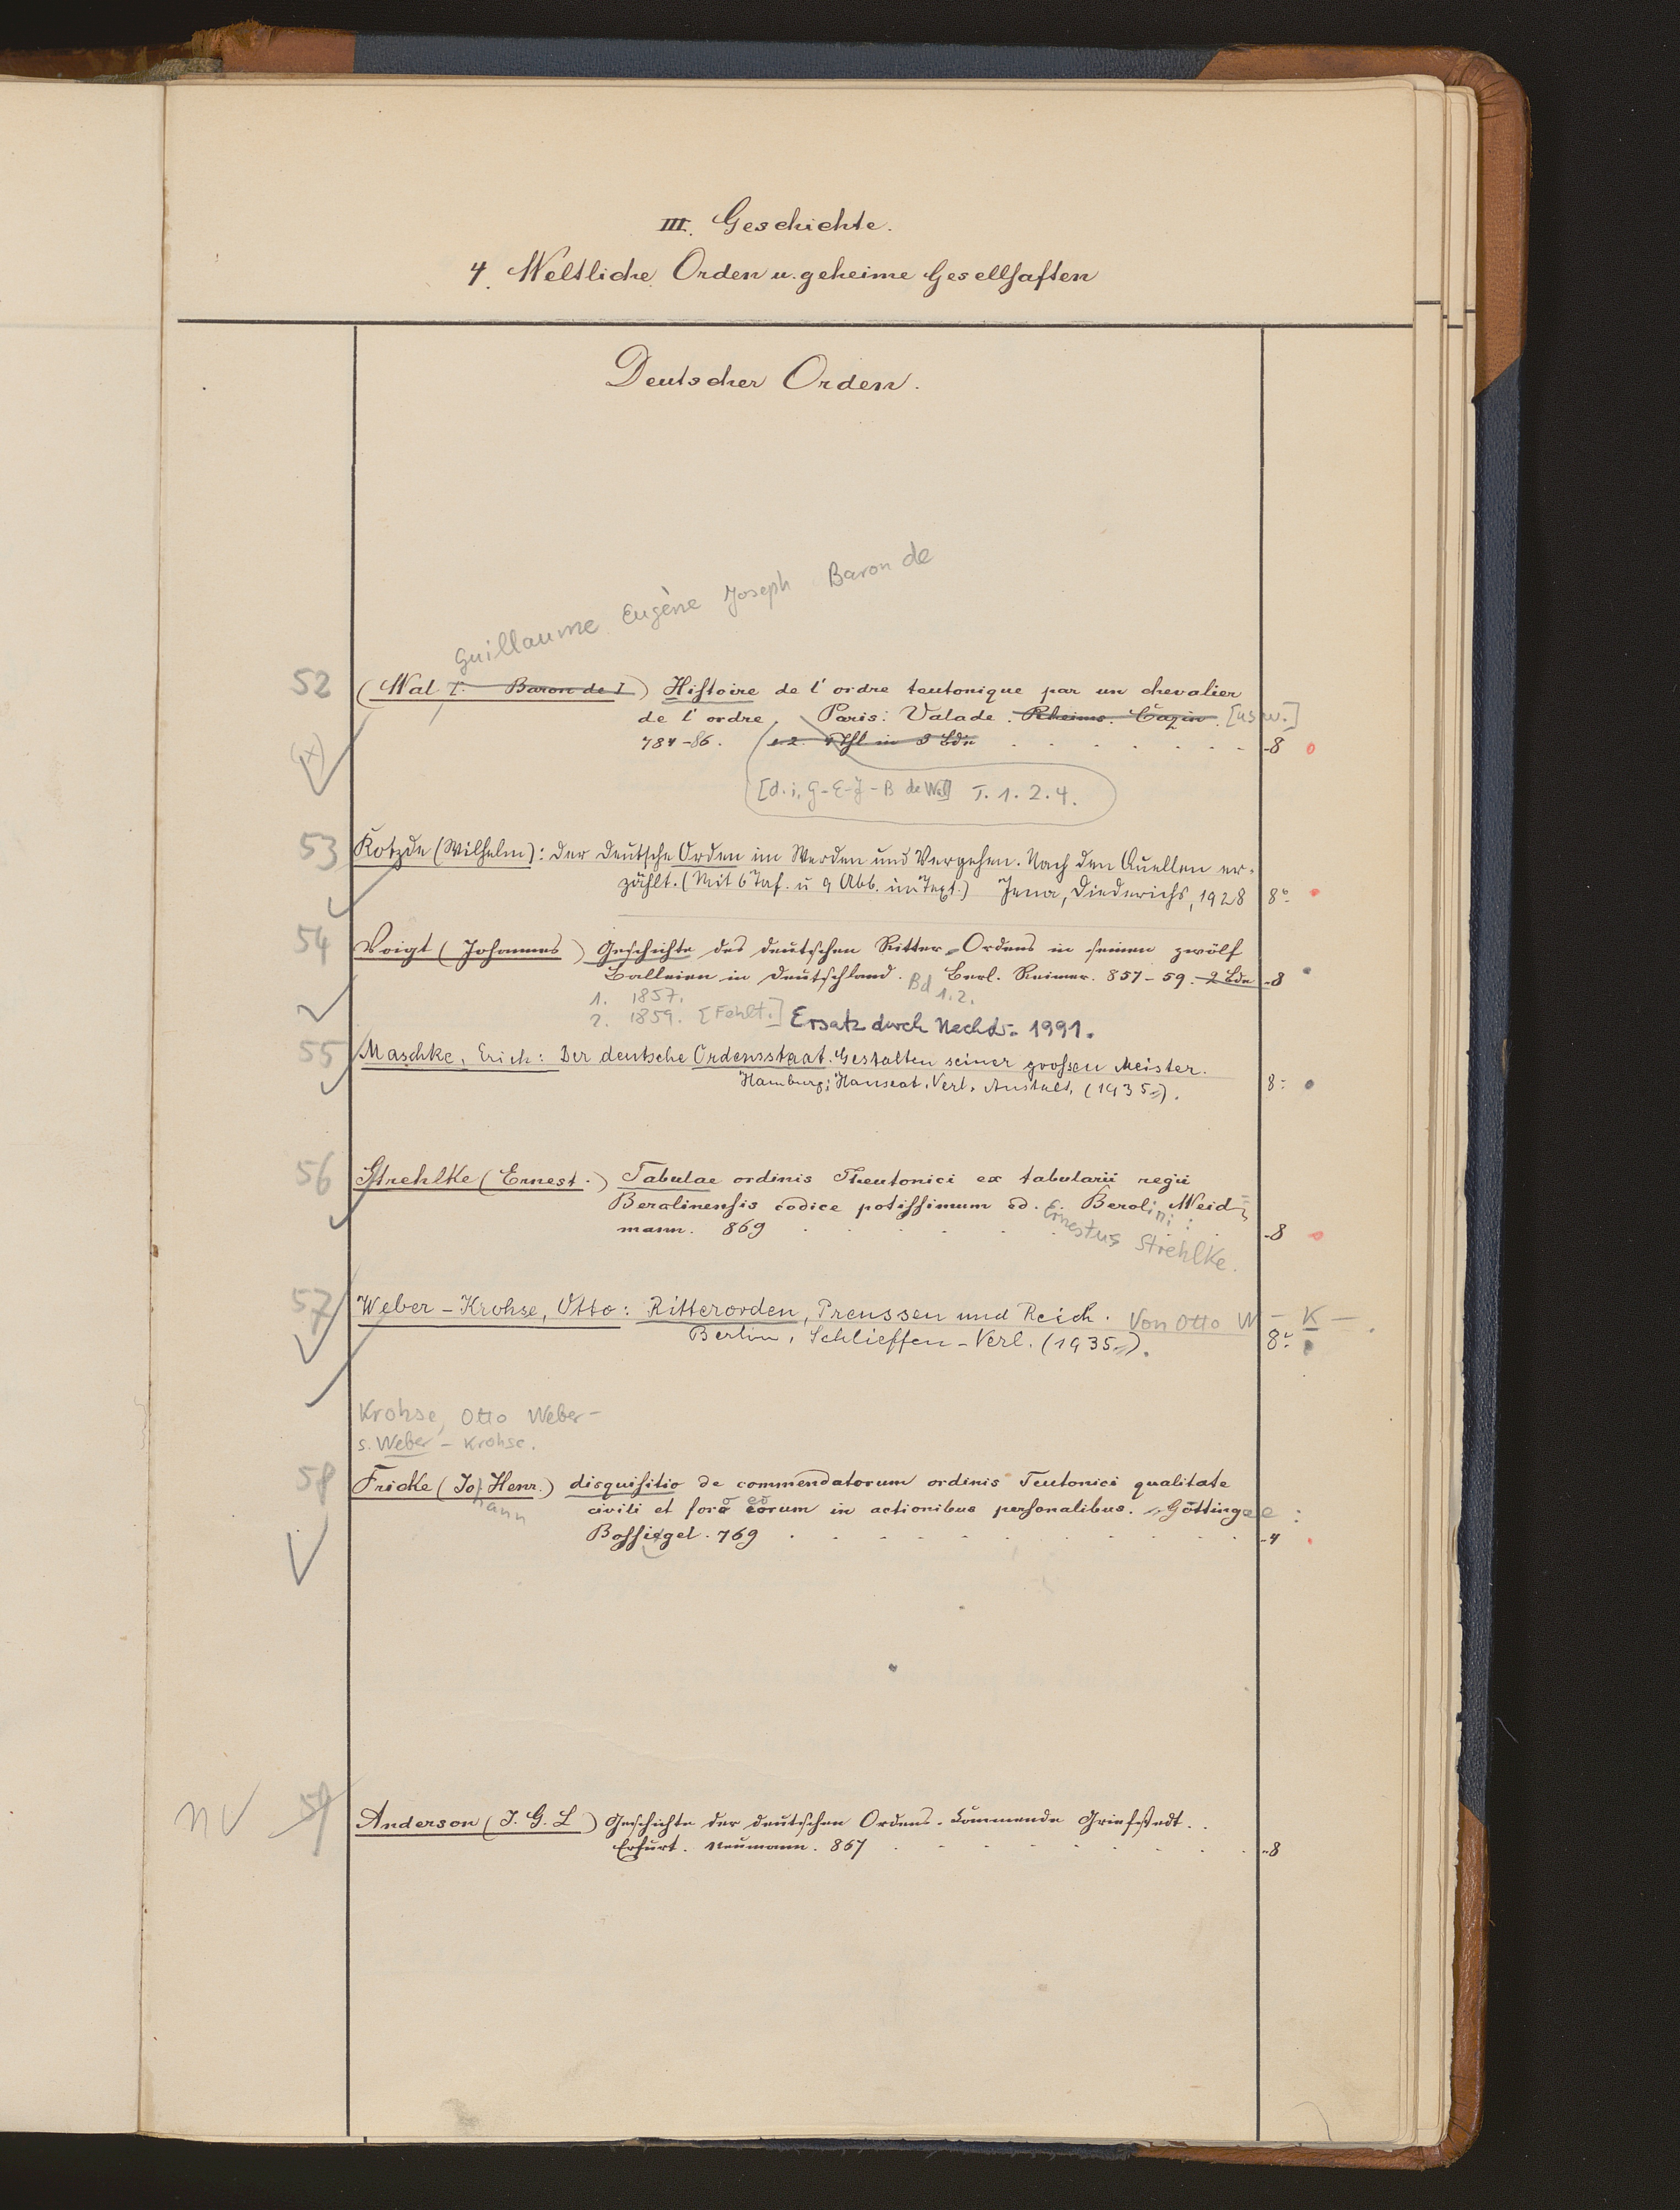 III. Geschichte.
4. Weltliche Orden u. geheime Gesellschaften
Deutscher Orden.
Guillaume Eugène Joseph Baron de
52 (Wal I. Baron de I) Histoire de l'ordre teutonique par un chevalier
de l'ordre, Paris: Valade. Rheims. Cazin. [usw.]
784-86. 1. 2. 4 Thl in 3 Bdn -8
(x)
[d. i. G-E-J-B de Wal] T. 1. 2. 4.
53 Kotzde (Wilhelm): Der Deutsche Orden im Werden und Vergehen. Nach den Quellen er-
zählt. (Mit 6 Taf. u 9 Abb. im Text.) Jena, Diederichs, 1928 8°
54 Voigt (Johannes) Geschichte des deutschen Ritter-Ordens in seinen zwölf
Balleien in Deutschland. Berl. Reimer. 857-59. 2 Bde -8
Bd 1. 2.
1. 1857.
2. 1859. [Fehlt.] Ersatz durch Nachdr. 1991.
55 Maschke, Erich: Der deutsche Ordensstaat. Gestalten seiner grossen Meister.
Hamburg: Hanseat. Verl. Anstalt, (1935). 8°
56 Strehlke (Ernest.) Tabulae ordinis Theutonici ex tabularii regii
Berolinensis codice potissimum ed. E. Berolini: Weid-
mann. 869 -8
Ernestus Strehlke.
57 Weber-Krohse, Otto: Ritterorden, Preussen und Reich. Von Otto W-K-.
Berlin, Schlieffen-Verl. (1935). 8°
Krohse, Otto Weber-
s. Weber-Krohse.
58 Fricke (Joh Henr.) disquisitio de commendatorum ordinis Teutonici qualitate
hann
civili et foro eorum in actionibus personalibus. Göttingae:
Bossiegel. 769 -4
nv 59 Anderson (J. G. L) Geschichte der deutschen Ordens-Commende Griefstedt.
Erfurt. Neumann. 867 -8